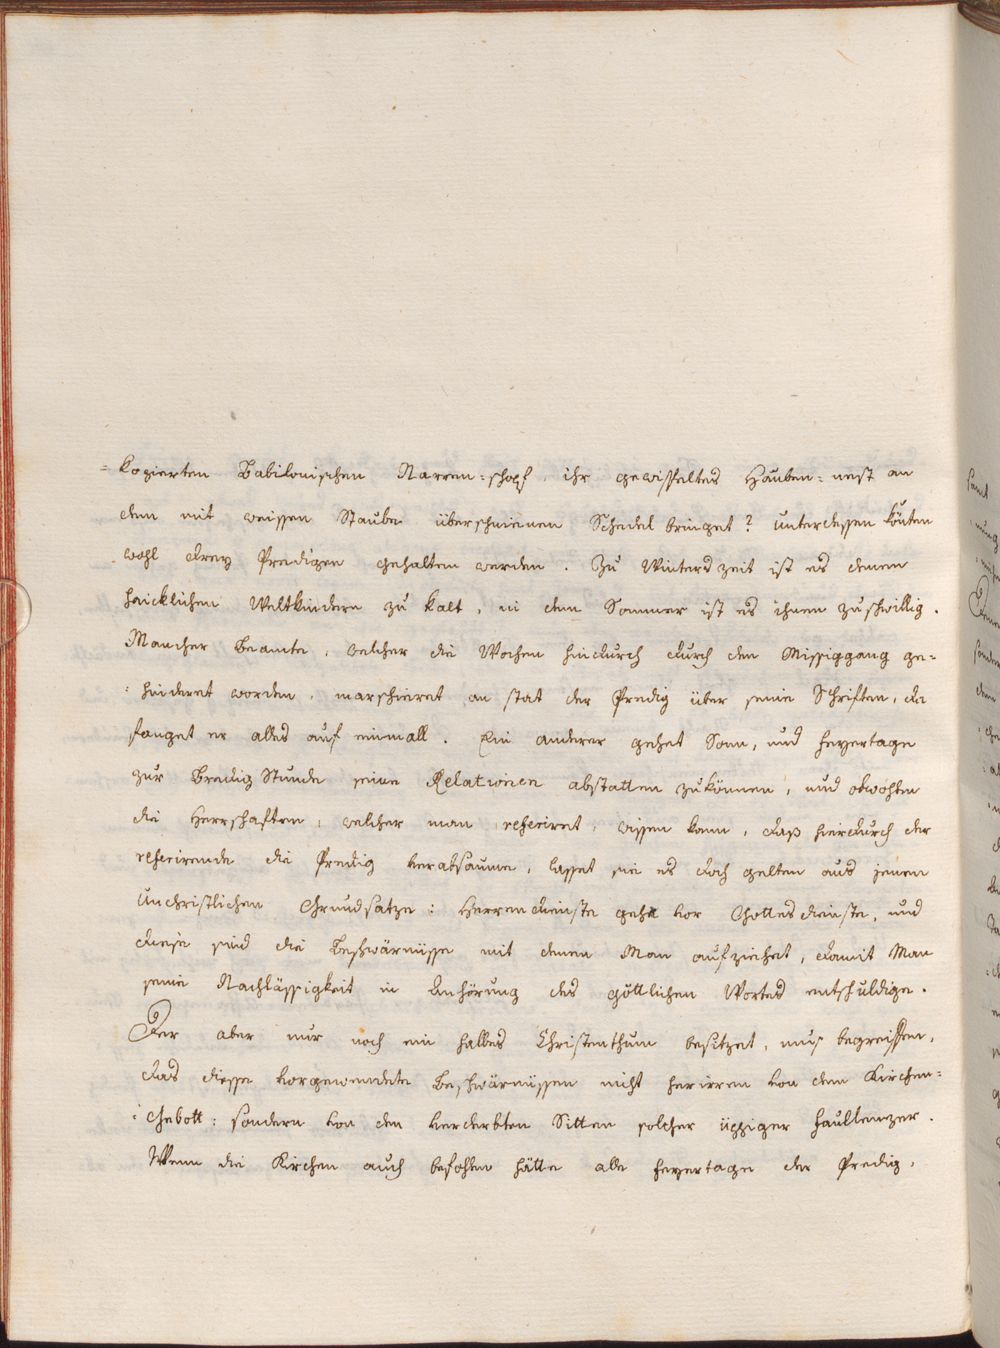 = kozierten Babilonischen Narren=schopf, ihr gewisheltes Hauben=nest an
dem mit weissen Staube überschneienen Schedel bringet? unterdessen könten
wohl drey Predigen gehalten werden. Zu Winterszeit ist es denen
heicklichen Weltkindern zu kalt, in dem Sommer ist es ihnen zu schwillig.
Mancher Beamte, welcher die Wochen hindurch durch den Missiggang ge=
:hinderet worden, marschieret an stat der Predig über seine Schriften, da
fanget er alles auf einmall. Ein anderer gehet Sonn, und feyertage
zur Predig Stunde seine Relationen abstatten zu können, und obwohlen
die Herrschaften, welcher man referiret, wissen kann, daß hierdurch der
referirende die Predig verabsaume, lasset sie es doch gelten aus jenem
unchristlichen Grundsatze: Herrendienste geht vor Gottesdienste, und
diese sind die Beschwärnüsse mit denen Man aufziehet, damit Man
seine Nachlässigkeit in Anhörung des göttlichen Wortes entschuldige.
Der aber nur noch ein halbes Christenthum besitzet, mus begreiffen,
das diesse vorgewendete Beschwärnüssen nicht herirren von dem Kirchen=
:Gebott: sondern von den verderbten Sitten solcher üppiger Faullenzer.
Wenn die Kirchen auch befohlen hätte alle feyertage der Predig,